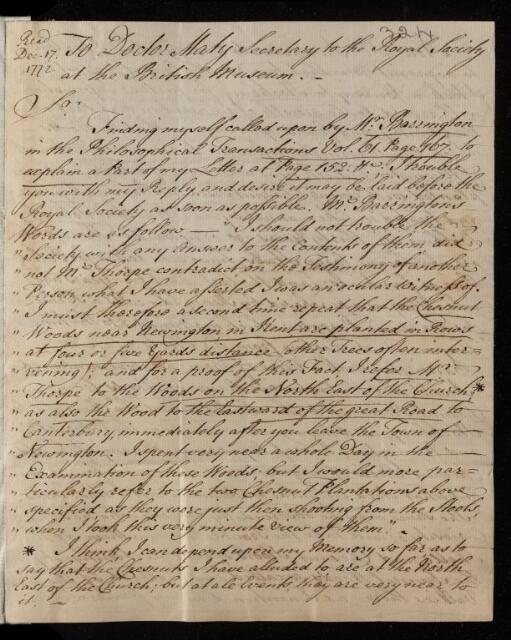 Read
Dec. 17.
1772
324
To Doctor Maty Secretary to the Royal Society
at the British Museum. —
Sr.
Finding myself called upon by Mr. Barrington
in the Philosophical Transactions Vol. 61. Page 167. to
explain a Part of my Letter at Page 152. &c. I trouble
you with my Reply and desire it may be laid before the
Royal Society as soon as possible. Mr. Barrington's
Words are as follow — "I should not trouble the
" Society with any answer to the Contents of them did
" not Mr. Thorpe contradict on the Testimony of another
" Person what I have asserted I was an ocular witness of.
" I must therefore a second time repeat that the Chesnut
" Woods near Newington in Kent are planted in Rows
" at four or five Yards distance (other Trees often inter=
" vening) and for a proof of this Fact I refer Mr.
" Thorpe to the Woods on the North East of the Church *
" as also the Wood to the Eastward of the great Road to
" Canterbury, immediately after you leave the Town of
" Newington. I spent very near a whole Day in the —
" Examination of these Woods but I would more par=
" ticularly refer to the two Chesnut Plantations above
" specified as they were just then shooting from the Stools,
" when I took this very minute view of them."
* I think, I can depend upon my Memory so far as to
say that the Chesnuts I have alluded to are at the North
East of the Church; but at all Events they are very near to
it. —